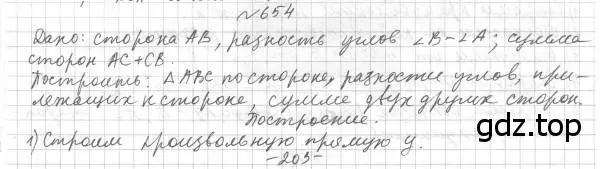 №654
Дано: сторона AB, разность углов ∠B-∠A; сумма
сторон AC+CB.
Построить: △ABC по стороне, разности углов, при-
лежащих к стороне, сумме двух других сторон.
Построение.
1) Строим произвольную прямую y.
-203-
gdz.top